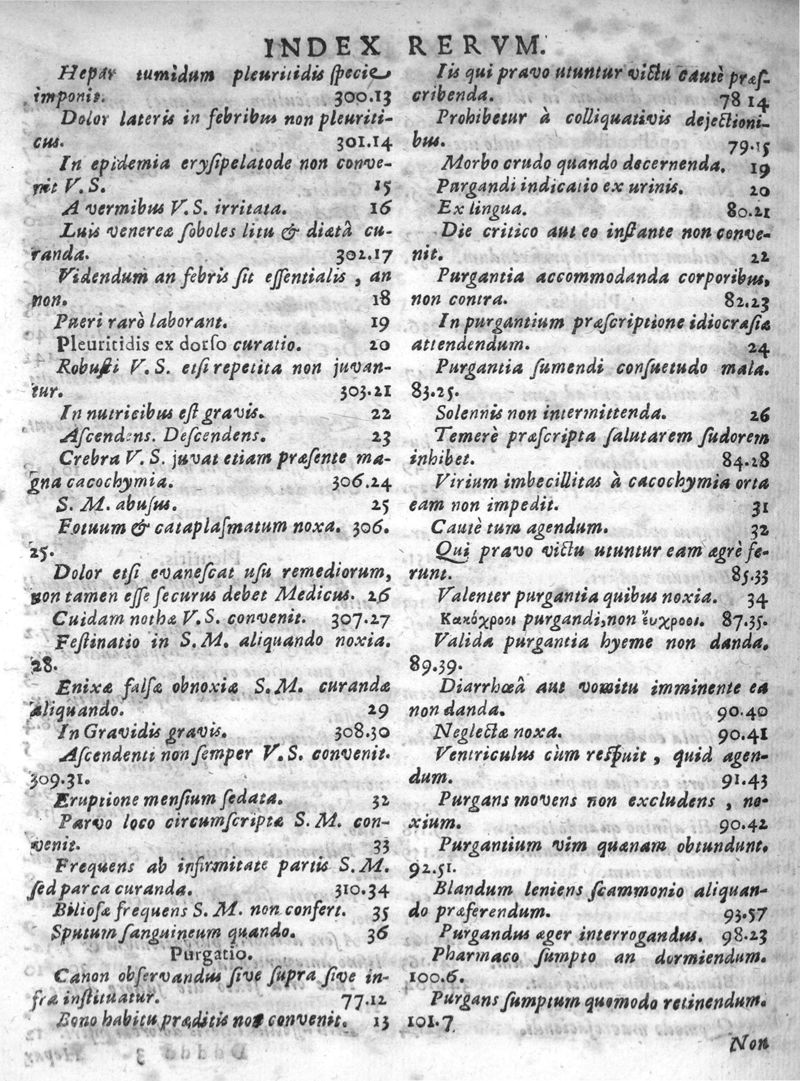 INDEX RERVM.
Hepar tumidum pleuritidis specie
imponit. 300.13
Dolor lateris in febribus non pleuriti-
cus. 301.14
In epidemia erysipelatode non conve-
nit V. S. 15
A vermibus V. S. irritata. 16
Luis venereæ soboles litu & diætâ cu-
randa. 302.17
Videndum an febris sit essentialis, an
non. 18
Pueri rarò laborant. 19
Pleuritidis ex dorso curatio. 20
Robusti V. S. etsi repetita non juvan-
tur. 303.21
In nutricibus est gravis. 22
Ascendens. Descendens. 23
Crebra V. S. juvat etiam præsente ma-
gna cacochymia. 306.24
S. M. abusus. 25
Fotuum & cataplasmatum noxa. 306.
25.
Dolor etsi evanescat usu remediorum,
non tamen esse securus debet Medicus. 26
Cuidam nothæ V. S. convenit. 307.27
Festinatio in S. M. aliquando noxia.
28.
Enixæ falsæ obnoxiæ S. M. curandæ
aliquando. 29
In Gravidis gravis. 308.30
Ascendenti non semper V. S. convenit.
309.31.
Eruptione mensium sedata. 32
Parvo loco circumscriptæ S. M. con-
venit. 33
Frequens ab infirmitate partis S. M.
sed parca curanda. 310.34
Biliosæ frequens S. M. non confert. 35
Sputum sanguineum quando. 36
Purgatio.
Canon observandus sive supra sive in-
fra instituatur. 77.12
Bono habitu præditis non convenit. 13
Iis qui pravo utuntur victu cautè præs-
cribenda. 78 14
Prohibetur à colliquativis dejectioni-
bus. 79.15
Morbo crudo quando decernenda. 19
Purgandi indicatio ex urinis. 20
Ex lingua. 80.21
Die critico aut eo instante non conve-
nit. 22
Purgantia accommodanda corporibus,
non contra. 82.23
In purgantium præscriptione idiocrasiæ
attendendum. 24
Purgantia sumendi consuetudo mala.
83.25.
Solennis non intermittenda. 26
Temerè præscripta salutarem sudorem
inhibet. 84.28
Virium imbecillitas à cacochymia orta
eam non impedit. 31
Cautè tum agendum. 32
Qui pravo victu utuntur eam ægrè fe-
runt. 85.33
Valenter purgantia quibus noxia. 34
Κακόχροοι purgandi, non ἔυχροοι. 87.35.
Valida purgantia hyeme non danda.
89.39.
Diarrhœâ aut vomitu imminente ea
non danda. 90.40
Neglectæ noxa. 90.41
Ventriculus cùm respuit, quid agen-
dum. 91.43
Purgans movens non excludens, no-
xium. 90.42
Purgantium vim quænam obtundunt.
92.51.
Blandum leniens scammonio aliquan-
do præferendum. 93.57
Purgandus æger interrogandus. 98.23
Pharmaco sumpto an dormiendum.
100.6.
Purgans sumptum quomodo retinendum.
101.7
Non